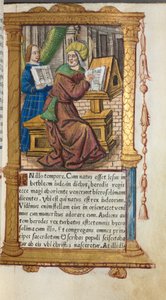 N illo tempore, Cum natus esset Jesus in
bethleem iude in diebus herodis regis
ecce magi ab oriente venerunt hierosolimam
dicentes, Vbi est qui natus est rex iudeorum
Vidimus enim stellam eius in oriente et veni
mus cum muneribus adorare eum, Audiens
herodes rex turbatus est et omnis
cum illo, Et congregans omnes prin
cipes sacerdotum et scribas populi sciscitaba
tur ab eis vbi christus nasceretur, At illi di